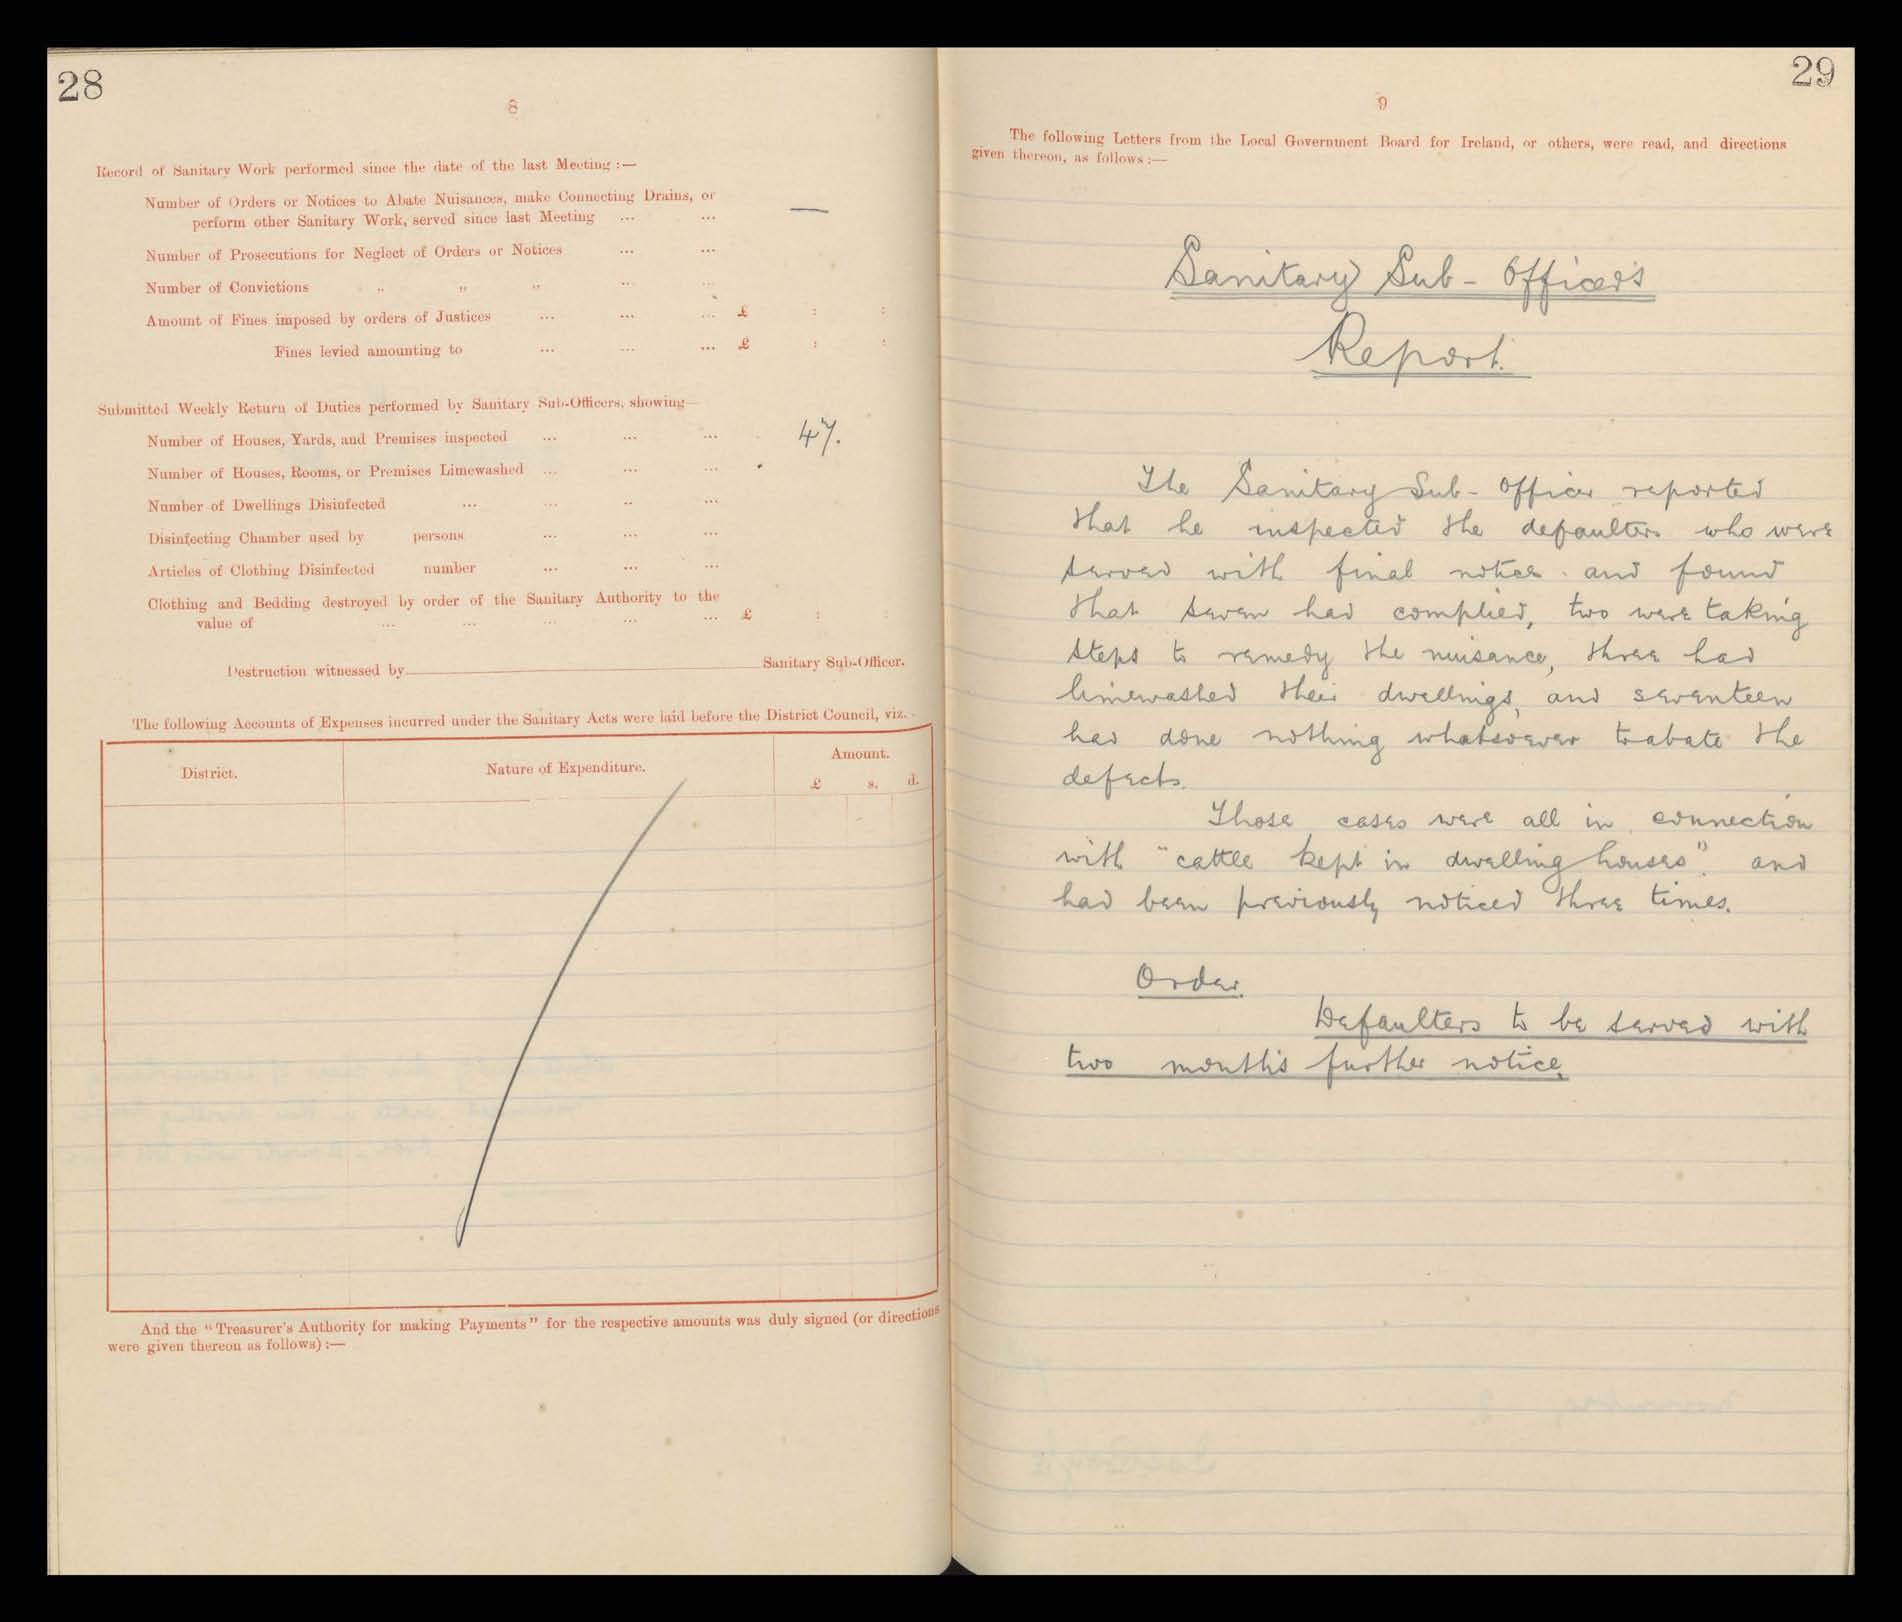 28
8
Record of Sanitary Work performed since the date of the last Meeting :—
Number of Orders or Notices to Abate Nuisances, make Connecting Drains, or
perform other Sanitary Work, served since last Meeting ... ... —
Number of Prosecutions for Neglect of Orders or Notices ... ...
Number of Convictions " " " ... ...
Amount of Fines imposed by orders of Justices ... ... ... £ : :
Fines levied amounting to ... ... ... £ : :
Submitted Weekly Return of Duties performed by Sanitary Sub-Officers, showing—
Number of Houses, Yards, and Premises inspected ... ... ... 47.
Number of Houses, Rooms, or Premises Limewashed ... ... ...
Number of Dwellings Disinfected ... ... ... ...
Disinfecting Chamber used by persons ... ... ...
Articles of Clothing Disinfected number ... ... ...
Clothing and Bedding destroyed by order of the Sanitary Authority to the
value of ... ... ... ... ... £ : :
Destruction witnessed by Sanitary Sub-Officer.
The following Accounts of Expenses incurred under the Sanitary Acts were laid before the District Council, viz.-
District. Nature of Expenditure. Amount.
£ s. d.
And the "Treasurer's Authority for making Payments" for the respective amounts was duly signed (or directions
were given thereon as follows) :—
29
9
The following Letters from the Local Government Board for Ireland, or others, were read, and directions
given thereon, as follows :—
Sanitary Sub-Officer's
Report.
The Sanitary Sub-Officer reported
that he inspected the defaulters who were
served with final notice and found
that seven had complied, two were taking
steps to remedy the nuisance, three had
limewashed their dwellings, and seventeen
had done nothing whatsoever to abate the
defects.
Those cases were all in connection
with "cattle kept in dwelling houses". and
had been previously noticed three times.
Order.
Defaulters to be served with
two month's further notice.